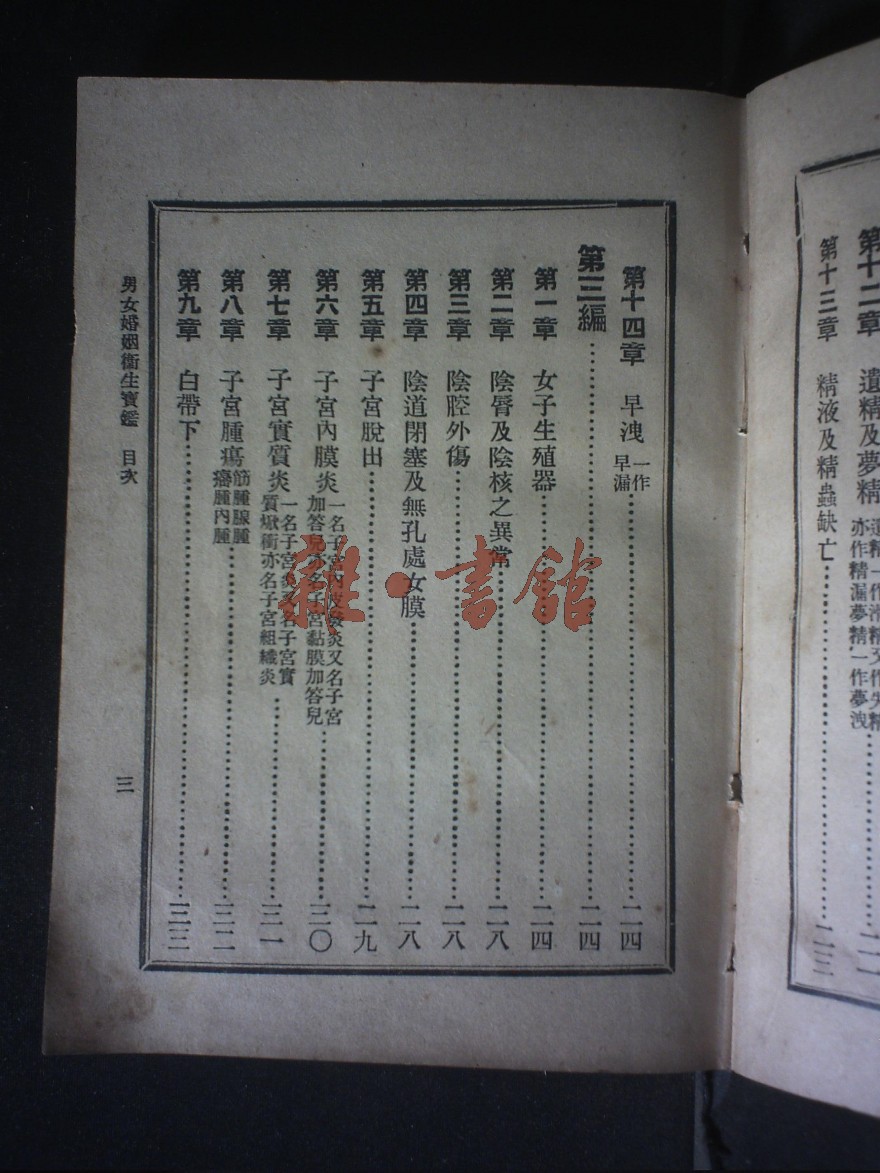 第十二章 遺精及夢精 遺精一作滑精又作失精
亦作精漏夢精一作夢洩
第十三章 精液及精蟲缺亡 二三
第十四章 早洩 一作早漏 二四
第三編 二四
第一章 女子生殖器 二四
第二章 陰脣及陰核之異常 二八
第三章 陰腔外傷 二八
第四章 陰道閉塞及無孔處女膜 二八
第五章 子宮脫出 二九
第六章 子宮內膜炎 一名子宮內皮發炎又名子宮
加答兒亦名子宮黏膜加答兒 三〇
第七章 子宮實質炎 一名子宮炎又名子宮實
質焮衝亦名子宮組織炎 三一
第八章 子宮腫瘍 筋腫腺腫
癌腫內腫 三二
第九章 白帶下 三三
男女婚姻衞生寶鑑 目次 三
雜·書館